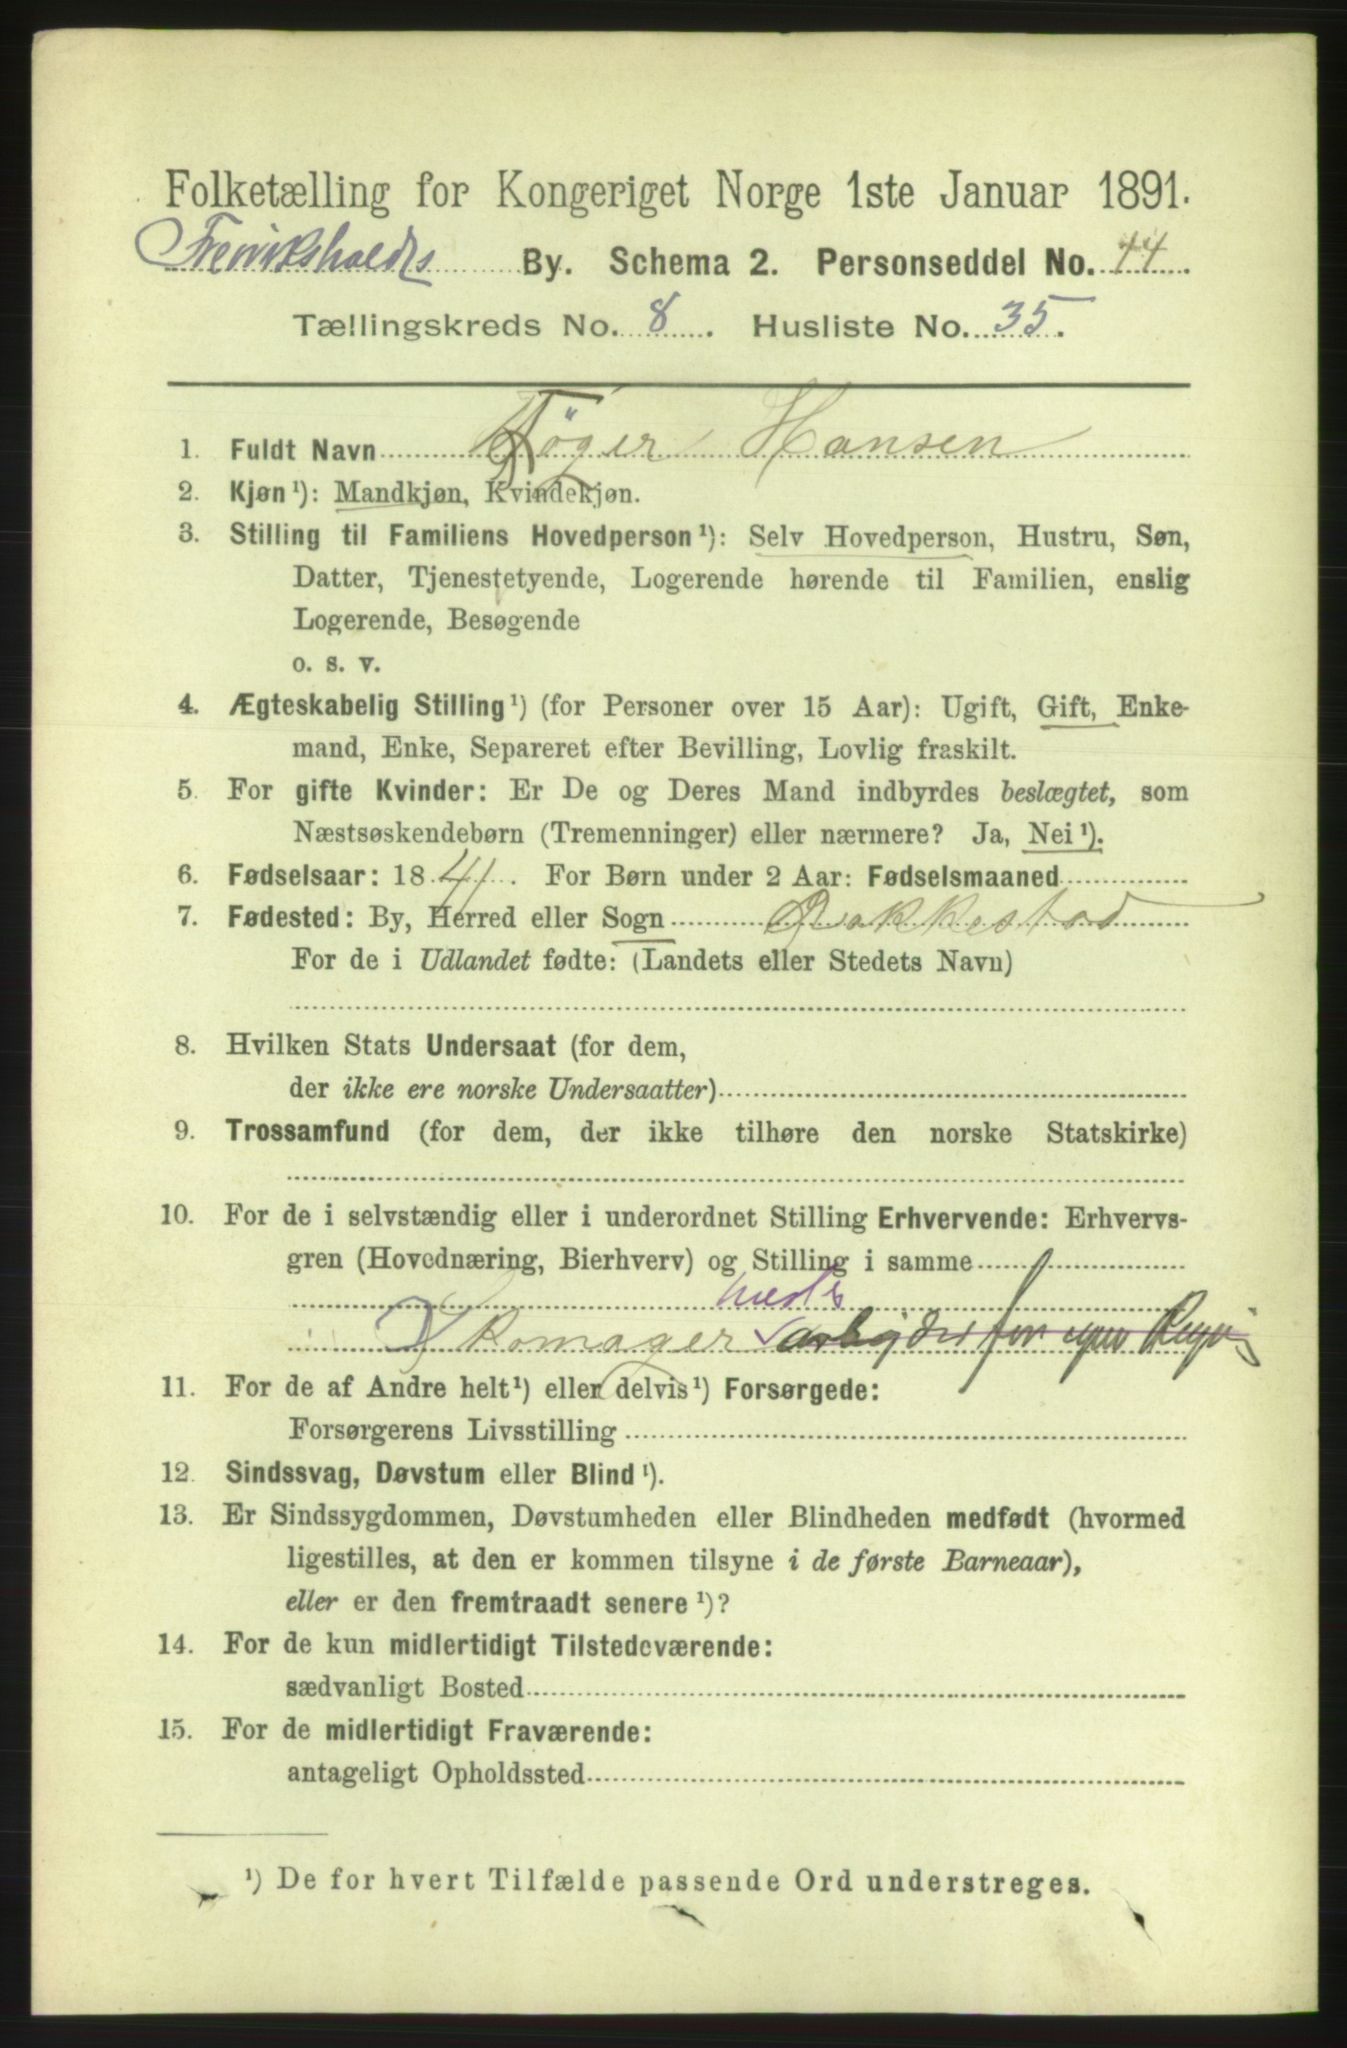 Folketælling for Kongeriget Norge 1ste Januar 1891.
Fredrikshalds By. Schema 2. Personseddel No. 44.
Tællingskreds No. 8. Husliste No. 35.
1. Fuldt Navn Töger Hansen
2. Kjøn ¹): Mandkjøn, Kvindekjøn.
3. Stilling til Familiens Hovedperson ¹): Selv Hovedperson, Hustru, Søn,
Datter, Tjenestetyende, Logerende hørende til Familien, enslig
Logerende, Besøgende
o. s. v.
4. Ægteskabelig Stilling ¹) (for Personer over 15 Aar): Ugift, Gift, Enke-
mand, Enke, Separeret efter Bevilling, Lovlig fraskilt.
5. For gifte Kvinder: Er De og Deres Mand indbyrdes beslægtet, som
Næstsøskendebørn (Tremenninger) eller nærmere? Ja, Nei ¹).
6. Fødselsaar: 1841. For Børn under 2 Aar: Fødselsmaaned
7. Fødested: By, Herred eller Sogn Rakkestad
For de i Udlandet fødte: (Landets eller Stedets Navn)
8. Hvilken Stats Undersaat (for dem,
der ikke ere norske Undersaatter)
9. Trossamfund (for dem, der ikke tilhøre den norske Statskirke)
10. For de i selvstændig eller i underordnet Stilling Erhvervende: Erhvervs-
gren (Hovednæring, Bierhverv) og Stilling i samme
Skomager arbejder for egen Regni
11. For de af Andre helt ¹) eller delvis ¹) Forsørgede:
Forsørgerens Livsstilling
12. Sindssvag, Døvstum eller Blind ¹).
13. Er Sindssygdommen, Døvstumheden eller Blindheden medfødt (hvormed
ligestilles, at den er kommen tilsyne i de første Barneaar),
eller er den fremtraadt senere ¹)?
14. For de kun midlertidigt Tilstedeværende:
sædvanligt Bosted
15. For de midlertidigt Fraværende:
antageligt Opholdssted
¹) De for hvert Tilfælde passende Ord understreges.